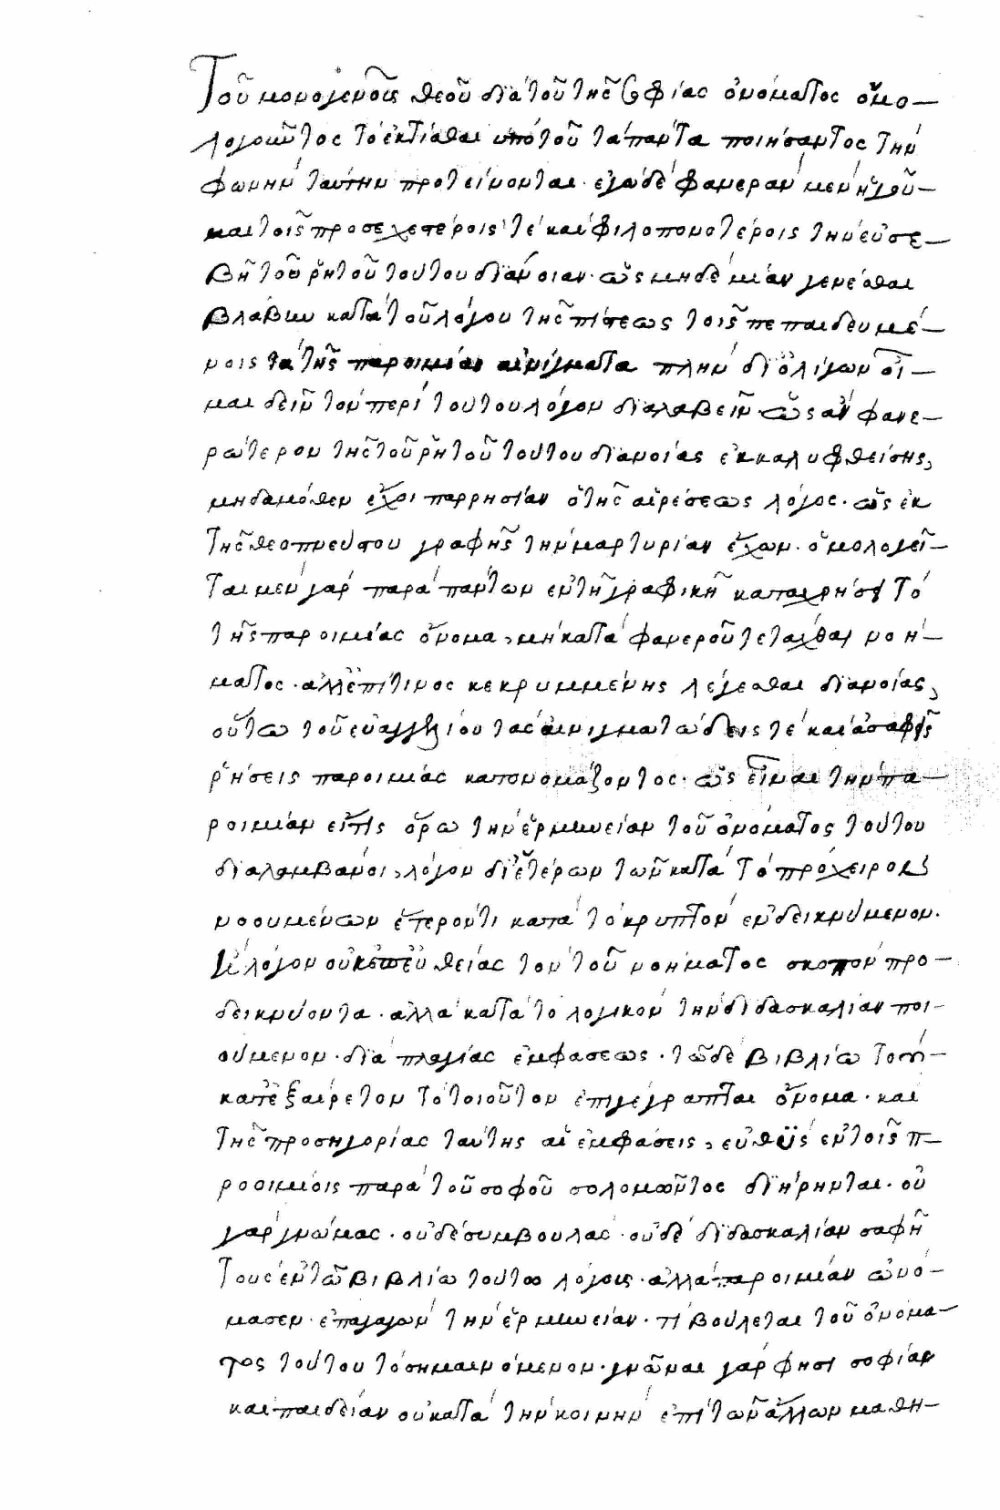 Τοῦ μονογενοῦς θεοῦ διὰ τοῦ τῆς σοφίας ὀνόματος ὁμο-
λογοῦντος τὸ ἐκτίσθαι ὑπὸ τοῦ τὰ πάντα ποιήσαντος τὴν
φωνὴν ταύτην προτείνονται· ἐγὼ δὲ φανερὰν μὲν ἡγοῦ-
μαι τοῖς προσεχεστέροις τὲ καὶ φιλοπονωτέροις τὴν εὐσε-
βῆ τοῦ ῥητοῦ τούτου διάνοιαν· ὡς μηδὲ μίαν γενέσθαι
βλάβην κατὰ τοῦ λόγου τῆς πίστεως τοῖς πεπαιδευμέ-
νοις τὰ τῆς παροιμίας αἰνίγματα πλὴν δι ὀλίγων οἶ-
μαι δεῖν τὸν περὶ τούτου λόγον διαλαβεῖν· ὡς ἂν φανε-
ρώτερον τῆς τοῦ ῥητοῦ τούτου διανοίας ἐκκαλυφθείσης,
μηδαμόθεν ἔχοι παρρησίαν ὁ τῆς αἱρέσεως λόγος· ὡς ἐκ
τῆς θεοπνεύστου γραφῆς τὴν μαρτυρίαν ἔχων· ὁμολογεῖ-
ται μὲν γὰρ παρὰ πάντων ἐν τῇ γραφικῇ καταχρήσει τὸ
τῆς παροιμίας ὄνομα, μὴ κατὰ φανεροῦ τετάχθαι νοή-
ματος· ἀλλ ἐπί τινος κεκρυμμένης λέγεσθαι διανοίας,
οὕτω τοῦ εὐαγγελίου τὰς αἰνιγματώδεις τὲ καὶ ἀσαφεῖς
ῥήσεις παροιμίας κατονομάζοντος· ὡς εἶναι τὴν πα-
ροιμίαν εἴ τις ὅρω τὴν ἑρμηνείαν τοῦ ὀνόματος τούτου
διαλαμβάνοι, λόγον δι ἑτέρων τῶν κατὰ τὸ πρόχειρον
νοουμένων ἕτερόν τι κατὰ τὸ κρυπτὸν ἐνδεικνύμενον.
ἢ λόγον οὐκ ἐπ εὐθείας τὸν τοῦ νοήματος σκοπὸν προ-
δεικνύοντα· ἀλλὰ κατὰ τὸ λοξικὸν τὴν διδασκαλίαν ποι-
ούμενον· διὰ πλαγίας ἐμφάσεως· τῶ δὲ βιβλίω τούτω
κατ ἐξαίρετον τὸ τοιοῦτον ἐπιγέγραπται ὄνομα· καὶ
τῆς προσηγορίας ταύτης αἱ ἐμφάσεις, εὐθὺς ἐν τοῖς π-
ροοιμίοις παρὰ τοῦ σοφοῦ σολομῶντος διήρηνται· οὐ
γὰρ γνώμας· οὐδὲ συμβουλὰς· οὐδὲ διδασκαλίαν σαφῆ
τοὺς ἐν τῶ βιβλίω τούτω λόγους· ἀλλὰ παροιμίαν ὠνό-
μασεν· ἐπαγαγὼν τὴν ἑρμηνείαν· τί βούλεται τοῦ ὀνόμα-
τος τούτου τὸ σημαινόμενον· γνῶναι γάρ φησι σοφίαν
καὶ παιδείαν οὐ κατὰ τὴν κοινὴν ἐπὶ τῶν ἄλλων μαθη-